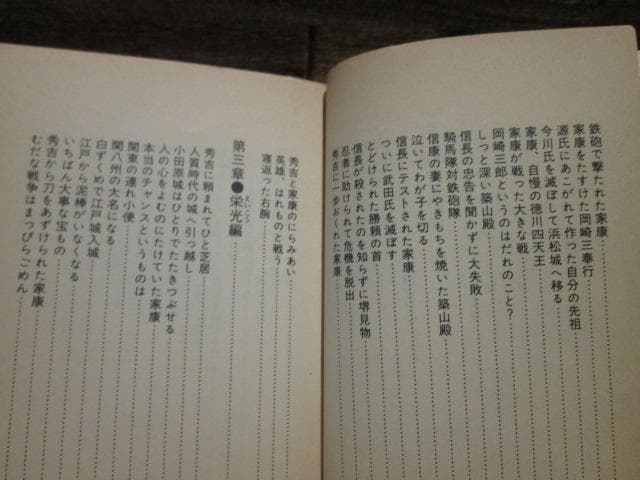 鉄砲で撃たれた家康
家康をたすけた岡崎三奉行
源氏にあこがれて作った自分の先祖
今川氏を滅ぼして浜松城へ移る
家康、自慢の徳川四天王
家康が戦った大きな戦
岡崎三郎というのはだれのこと?
しっと深い築山殿
信長の忠告を聞かずに大失敗
騎馬隊対鉄砲隊
信康の妻にやきもちを焼いた築山殿
泣いてわが子を切る
信長にテストされた家康
ついに武田氏を滅ぼす
とどけられた勝頼の首
信長が殺されたのを知らずに堺見物
忍者に助けられて危機を脱出
秀吉に一歩おくれた家康
秀吉と家康のにらみあい
英雄、はれものと戦う
寝返った右腕
第三章●栄光編
えいこう
秀吉に頼まれてひと芝居
人質時代の城へ引っ越し
小田原城はひとりでたたきつぶせる
人の心をよむのにたけていた家康
本当のチャンスというものは
関東の連れ小便
関八州の大名になる
白ずくめで江戸城入城
江戸から泥棒がいなくなる
いちばん大事な宝もの
秀吉から刀をあずけられた家康
むだな戦争はまっぴらごめん